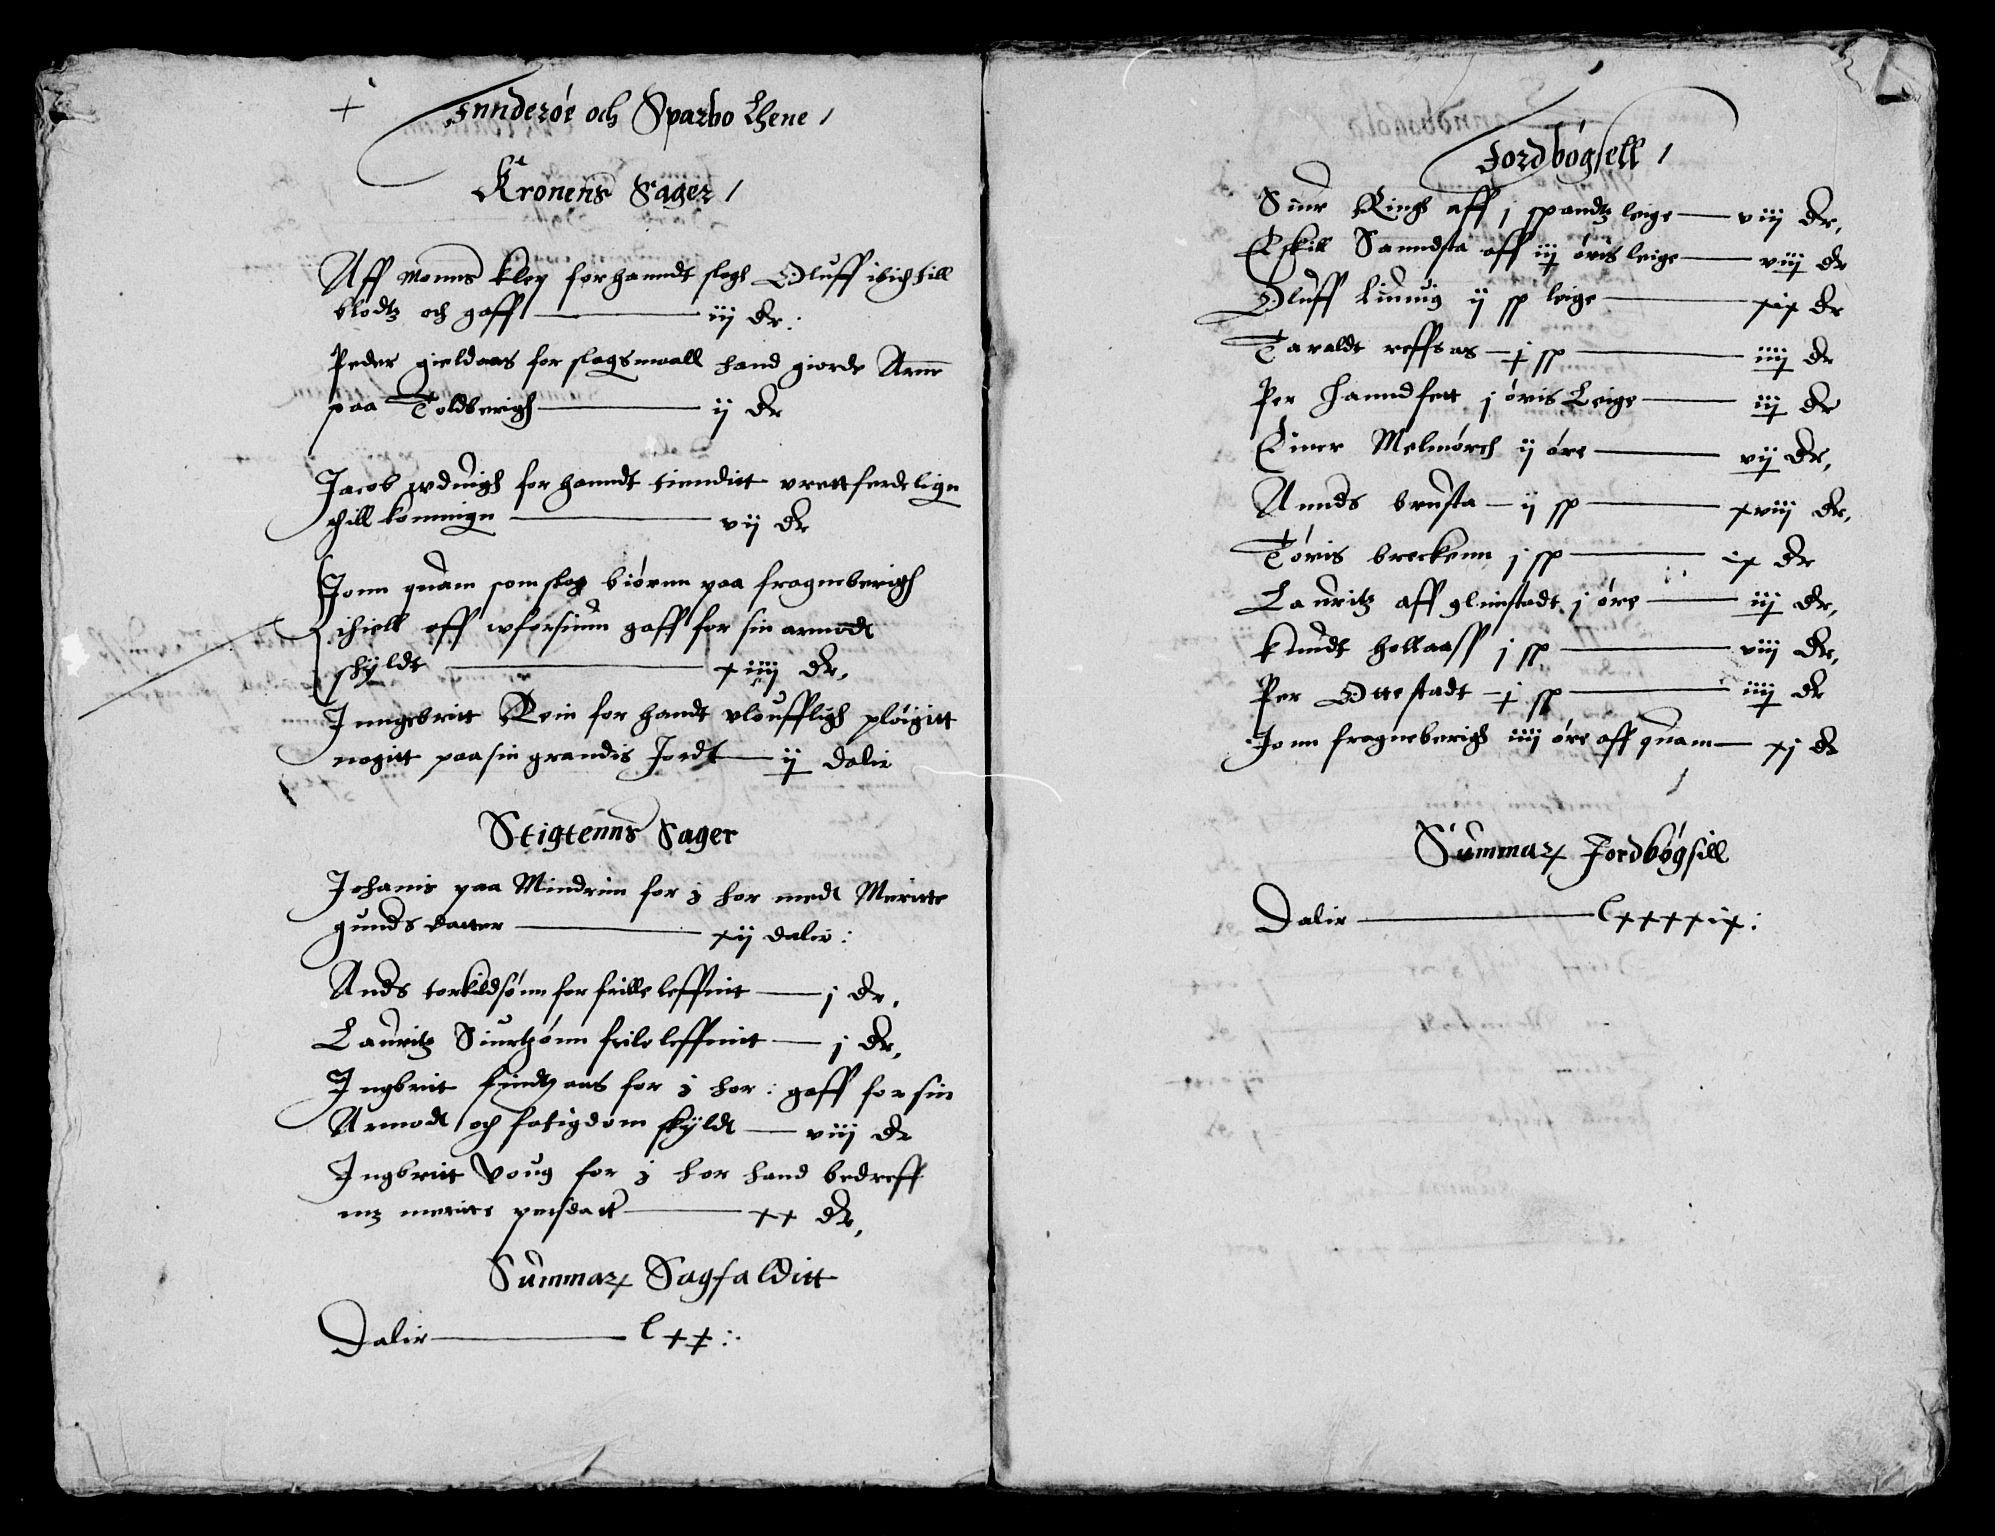 Innderøe och Sparbo Lhene /
Kronens Sager /
Aff Monns kley for hanndt slogh Oluff ibich till
blodtz och gaff — iij dr:
Peder gieldaas for slagsmaall hand giorde Arne
paa Toldberigh — ij dr
Jacob for hanndt tienditt vrettferdelign
till kommign — vij dr
Jonn quam som slog biørnn paa fragneberigh
ihiell aff wforsiunn gaff for sin armodt
skyldt — xiiij dr,
Inngebritt Rein for handt vlouffligh pløigitt
nogitt paa sin grandis Jordt — ij dalir
Stigtenns Sager
Johanis paa Mindrim for j hor medt Meritte
gunds datter — xij dalir:
Ands torkildsønn for frille leffnit — j dr,
Lauritz Siurtzønn frile leffnnit — j dr,
Ingbrit for j hor: gaff for sin
Armodt och fatigdom skyldt — viij dr
Ingbritt Voug for j hor hand bedreff
mz meritte persdatt — xx dr,
Summarx Sagfalditt
Dalir — lxx:
Jordbøgsell /
Siur Ringh aff j spandtz leige — viij dr,
Eskill Sanndsta aff iij øris leige — viij dr
Oluff Linnig ij sp leige — xix dr
Taraldt reffsas — j sp — iiij dr
Per hanndfett j øris Leige — iij dr
Einer Melmørch ij øre — vij dr,
Annds brusta — ij sp — xviij dr,
Tøris breckenn j sp — ix dr
Lauritz aff glimstadt j øre — iij dr,
knudt hollaass j sp — viij dr,
Per Ottestadt — j sp — iiij dr
Jonn fragneberigh iiij øre aff quam — xj dr
Summarx Jordbøgsill
Dalir — lxxxxix: